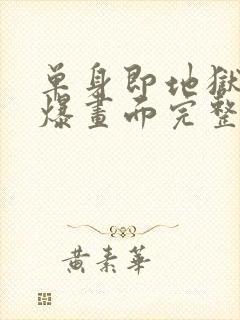 單身即地獄
爆畫而完整
黃素華